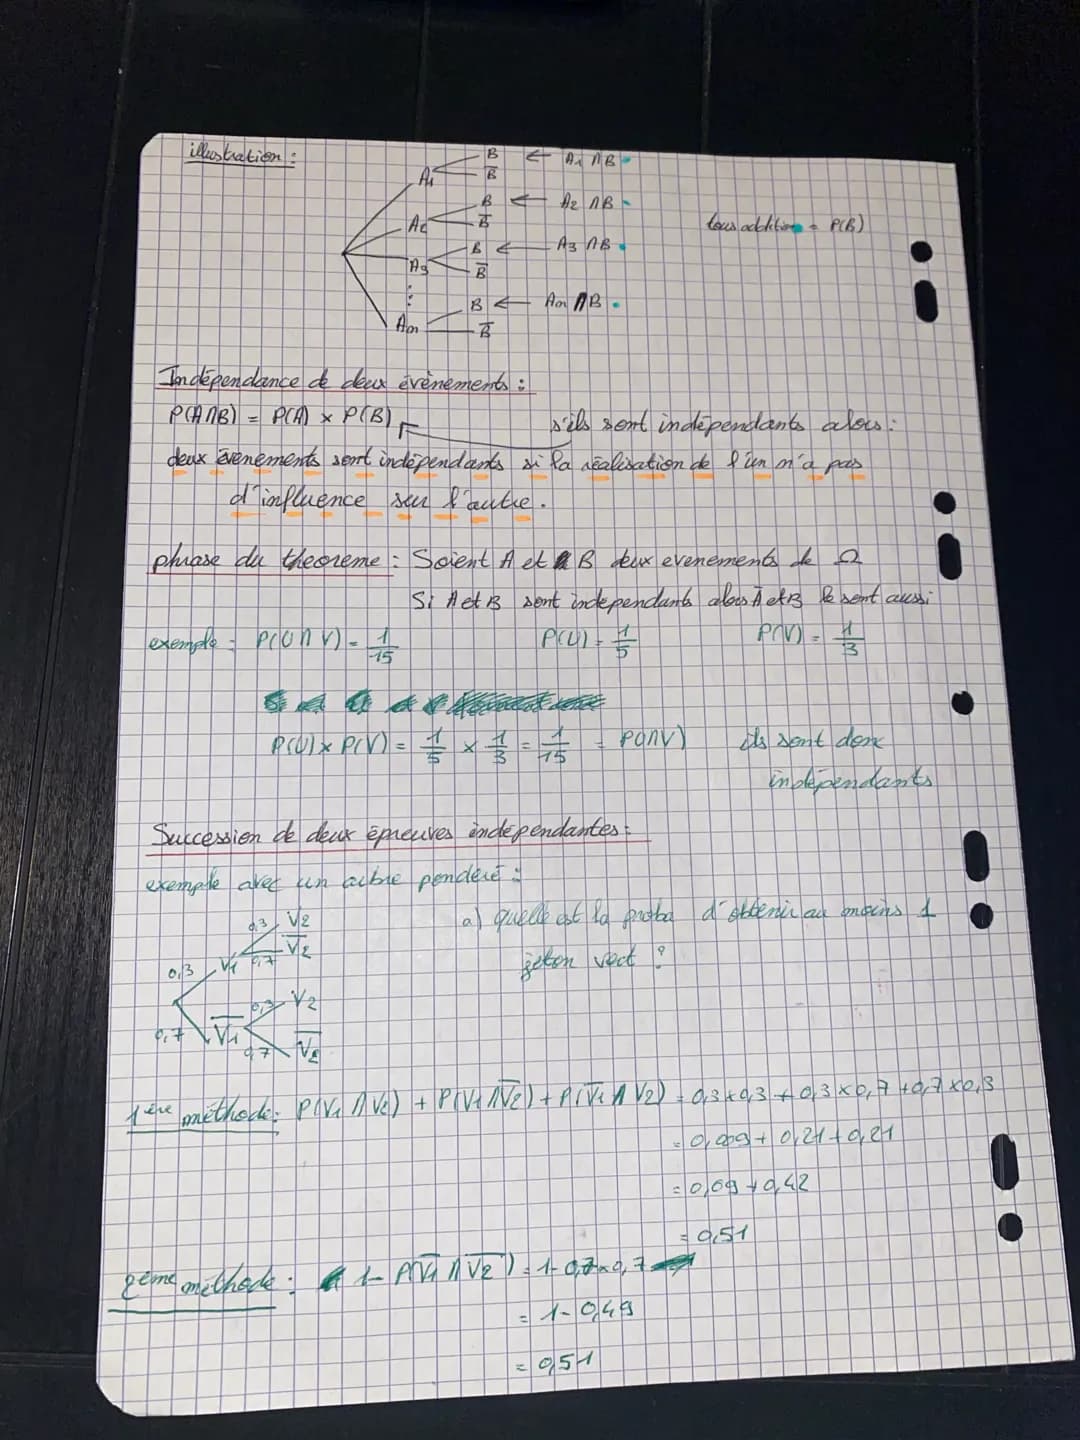 illustration :
B ← A1 ∩ B
A1
B̅
B ← A2 ∩ B
A2
B̅
tous addition = P(B)
B ← A3 ∩ B
A3
B̅
B ← An ∩ B
An
B̅
Indépendance de deux évènements :
P(A∩B) = P(A) × P(B)
s'ils sont indépendants alors :
deux évènements sont indépendants si la réalisation de l'un n'a pas
d'influence sur l'autre.
phrase du theoreme : Soient A et B deux evenements de Ω
Si A et B sont independants alors A̅ et B le sont aussi
exemple : P(U∩V) = 1/15 P(U) = 1/5 P(V) = 1/3
P(U) × P(V) = 1/5 × 1/3 = 1/15 = P(U∩V) ils sont donc
indépendants
Succession de deux épreuves indépendantes :
exemple avec un arbre pondéré :
a) quelle est la proba d'obtenir au moins 1
jeton vert ?
0,3 V2
0,3 V1 0,7 V̅2
0,7 V̅1 0,3 V2
0,7 V̅2
1ère méthode : P(V1 ∩ V2) + P(V1 ∩ V̅2) + P(V̅1 ∩ V2) = 0,3×0,3 + 0,3×0,7 + 0,7×0,3
= 0,009 + 0,21 + 0,21
= 0,09 + 0,42
= 0,51
2ème méthode : 1 - P(V̅1 ∩ V̅2) = 1 - 0,7×0,7
= 1 - 0,49
= 0,51